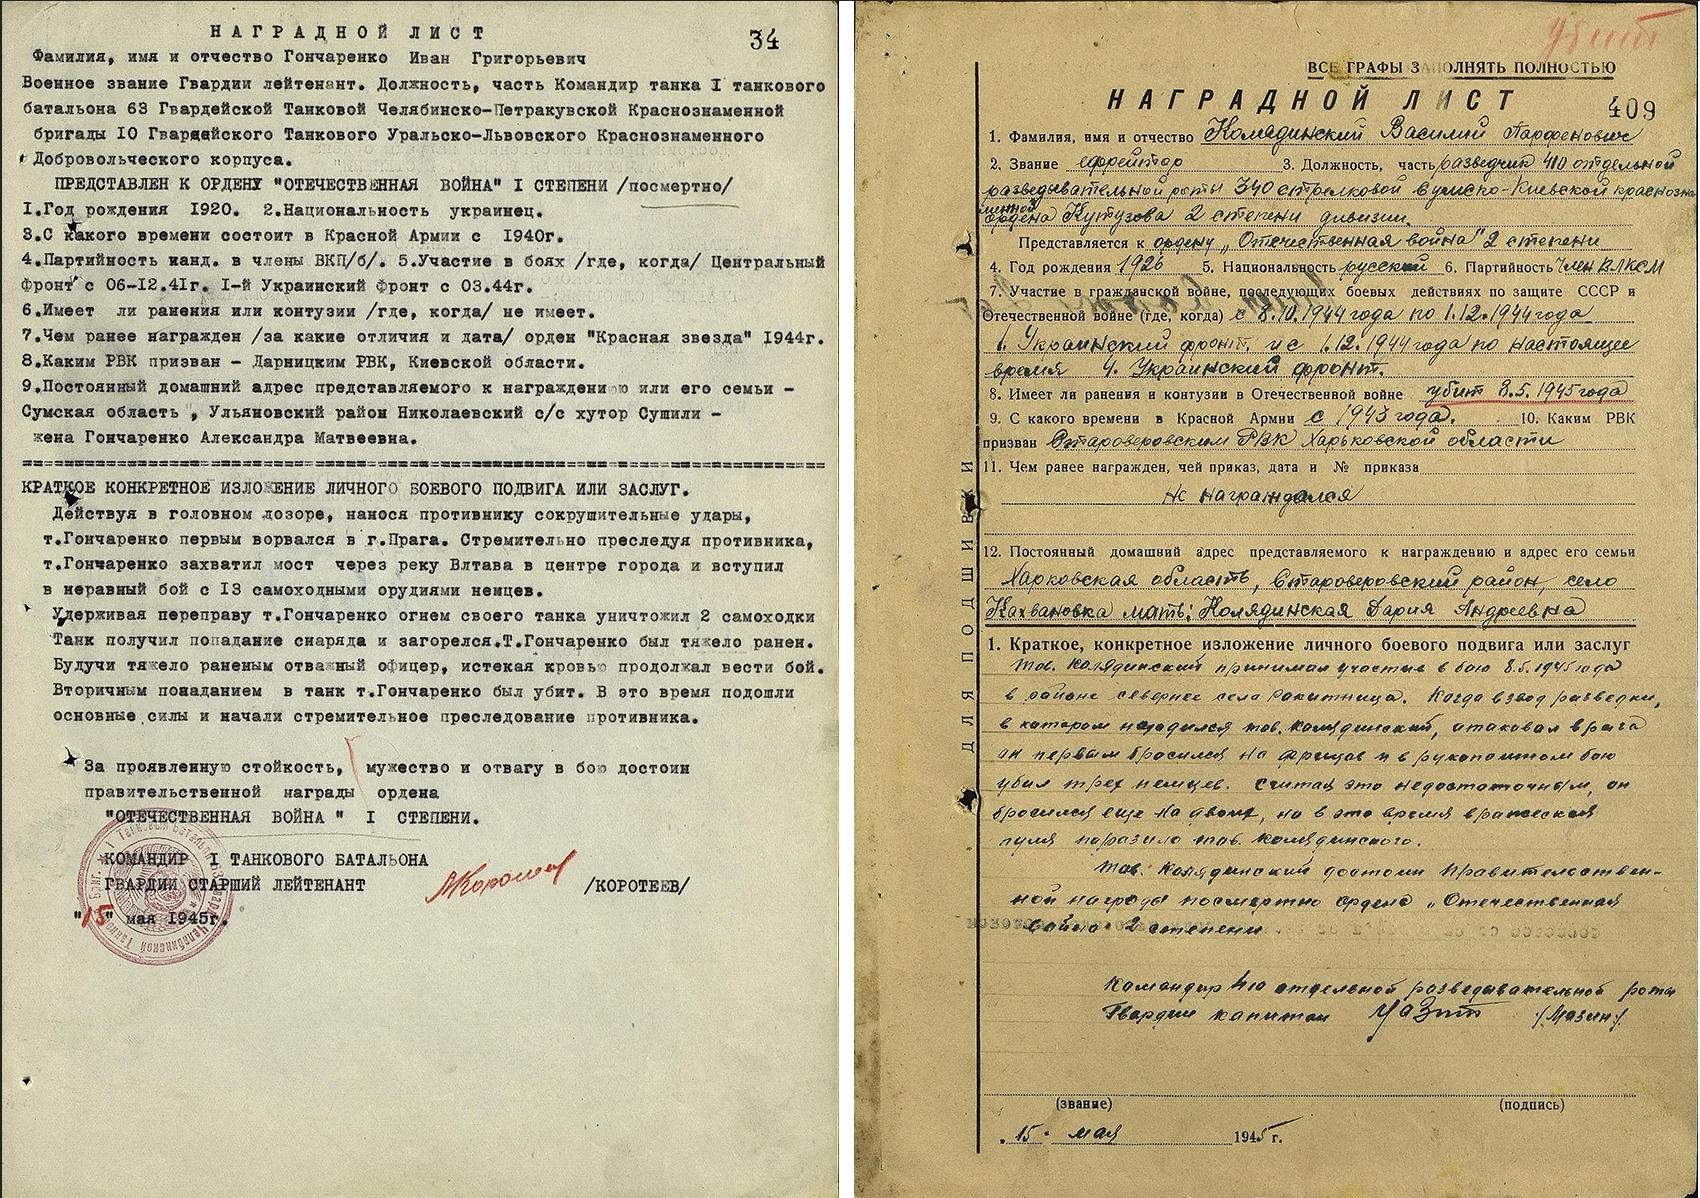 НАГРАДНОЙ ЛИСТ
34
Фамилия, имя и отчество Гончаренко Иван Григорьевич
Военное звание Гвардии лейтенант. Должность, часть Командир танка I танкового
батальона 63 Гвардейской Танковой Челябинско-Петракувской Краснознаменной
бригады 10 Гвардейского Танкового Уральско-Львовского Краснознаменного
Добровольческого корпуса.
ПРЕДСТАВЛЕН К ОРДЕНУ "ОТЕЧЕСТВЕННАЯ ВОЙНА" I СТЕПЕНИ /посмертно/
1.Год рождения 1920. 2.Национальность украинец.
3.С какого времени состоит в Красной Армии с 1940г.
4.Партийность канд. в члены ВКП/б/. 5.Участие в боях /где, когда/ Центральный
фронт с 06-12.41г. I-й Украинский фронт с 03.44г.
6.Имеет ли ранения или контузии /где, когда/ не имеет.
7.Чем ранее награжден /за какие отличия и дата/ орден "Красная звезда" 1944г.
8.Каким РВК призван - Дарницким РВК, Киевской области.
9.Постоянный домашний адрес представляемого к награждению или его семьи -
Сумская область , Ульяновский район Николаевский с/с хутор Сушили -
жена Гончаренко Александра Матвеевна.
КРАТКОЕ КОНКРЕТНОЕ ИЗЛОЖЕНИЕ ЛИЧНОГО БОЕВОГО ПОДВИГА ИЛИ ЗАСЛУГ.
Действуя в головном дозоре, нанося противнику сокрушительные удары,
т.Гончаренко первым ворвался в г.Прага. Стремительно преследуя противника,
т.Гончаренко захватил мост через реку Влтава в центре города и вступил
в неравный бой с 13 самоходными орудиями немцев.
Удерживая переправу т.Гончаренко огнем своего танка уничтожил 2 самоходки
Танк получил попадание снаряда и загорелся.Т.Гончаренко был тяжело ранен.
Будучи тяжело раненым отважный офицер, истекая кровью продолжал вести бой.
Вторичным попаданием в танк т.Гончаренко был убит. В это время подошли
основные силы и начали стремительное преследование противника.
За проявленную стойкость, мужество и отвагу в бою достоин
правительственной награды ордена
"ОТЕЧЕСТВЕННАЯ ВОЙНА " I СТЕПЕНИ.
КОМАНДИР I ТАНКОВОГО БАТАЛЬОНА
ГВАРДИИ СТАРШИЙ ЛЕЙТЕНАНТ /КОРОТЕЕВ/
"15" мая 1945г.
убит
ВСЕ ГРАФЫ ЗАПОЛНЯТЬ ПОЛНОСТЬЮ
НАГРАДНОЙ ЛИСТ
409
1. Фамилия, имя и отчество Колядинский Василий Парфенович
2. Звание ефрейтор 3. Должность, часть разведчик 410 отдельной
разведывательной роты 340 стрелковой Сумско-Киевской краснозна
менной
ордена Кутузова 2 степени дивизии.
Представляется к ордену „Отечественная война" 2 степени
4. Год рождения 1926 5. Национальность русский 6. Партийность Член ВЛКСМ
7. Участие в гражданской войне, последующих боевых действиях по защите СССР и
Отечественной войне (где, когда) с 8.10.1944 года по 1.12.1944 года
1. Украинский фронт. и с 1.12.1944 года по настоящее
время 4. Украинский фронт.
8. Имеет ли ранения и контузии в Отечественной войне убит 8.5.1945 года
9. С какого времени в Красной Армии с 1943 года. 10. Каким РВК
призван Староверовским РВК Харьковской области
11. Чем ранее награжден, чей приказ, дата и № приказа
не награждался
12. Постоянный домашний адрес представляемого к награждению и адрес его семьи
Харковская область, Староверовский район, село
Кахвановка мать: Колядинская Дария Андреевна
ДЛЯ ПОДШИВКИ
1. Краткое, конкретное изложение личного боевого подвига или заслуг
Тов. Колядинский принимал участие в бою 8.5.1945 года
в районе севернее села Рокитница. Когда взвод разведки,
в котором находился тов. Колядинский, атаковал врага
он первым бросился на фрицев и в рукопашном бою
убил трех немцев. Считая это недостаточным, он
бросился еще на двоих, но в это время вражеская
пуля поразила тов. Колядинского.
Тов. Колядинский достоин правительствен-
ной награды посмертно ордена „Отечественная
война" 2 степени
Командир 410 отдельной разведывательной роты
Гвардии капитан Мазин /Мазин/.
(звание) (подпись)
„15" мая 1945 г.